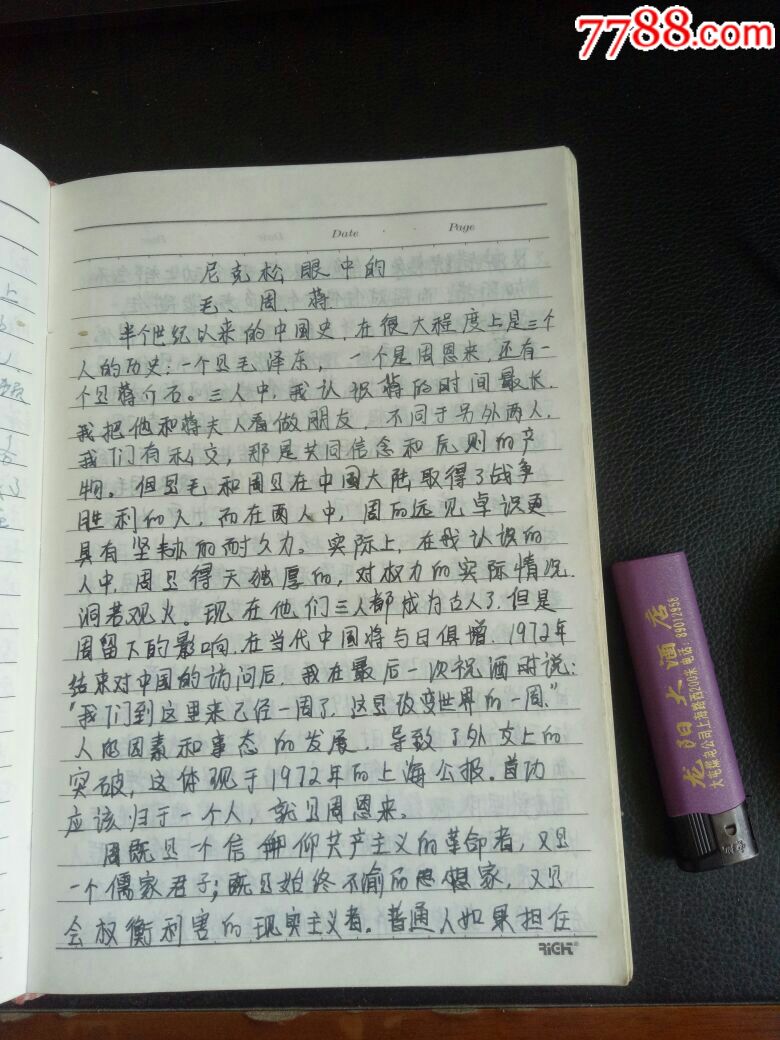 7788.com
Date
Page
尼克松眼中的
毛、周、蒋
半个世纪以来的中国史,在很大程度上是三个
人的历史:一个是毛泽东,一个是周恩来,还有一
个是蒋介石。三人中,我认识蒋的时间最长.
我把他和蒋夫人看做朋友,不同于另外两人,
我们有私交,那是共同信念和原则的产
物。但是毛和周是在中国大陆取得了战争
胜利的人,而在两人中,周的远见卓识更
具有坚韧的耐久力。实际上,在我认识的
人中,周是得天独厚的,对权力的实际情况
洞若观火。现在他们三人都成为古人了,但是
周留下的影响,在当代中国将与日俱增.1972年
结束对中国的访问后,我在最后一次祝酒时说:
"我们到这里来已经一周了,这是改变世界的一周."
人的因素和事态的发展,导致了外交上的
突破,这体现于1972年的上海公报。首功
应该归于一个人,就是周恩来。
周既是一个信仰共产主义的革命者,又是
一个儒家君子;既是始终不渝的思想家,又是
会权衡利害的现实主义者。普通人如果担任
RICH
龙阳大酒店
大屯煤电公司上海路西200米 电话:89012958